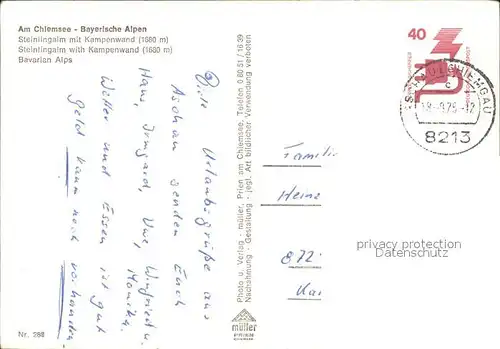 Am Chiemsee - Bayerische Alpen
Steinlingalm mit Kampenwand (1680 m)
Steinlingalm with Kampenwand (1680 m)
Bavarian Alps
Viele Urlaubsgrüße aus
Aschau senden Euch
Hans, Irmgard, Uwe, Winfried u.
Monika.
Wetter und Essen ist gut
Geld kaum noch vorhanden
Nr. 288
Photo u. Verlag - müller, Prien am Chiemsee, Telefon 0 80 51 / 16 39
Nachahmung - Gestaltung - jegl. Art bildlicher Verwendung verboten
müller
PRIEN
40
8213
Familie
Heinz
872
privacy protection
Datenschutz